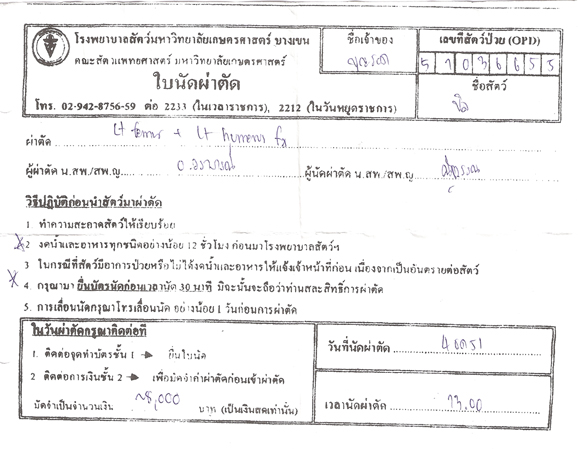 โรงพยาบาลสัตว์มหาวิทยาลัยเกษตรศาสตร์ บางเขน
คณะสัตวแพทยศาสตร์ มหาวิทยาลัยเกษตรศาสตร์
ใบนัดผ่าตัด
โทร. 02-942-8756-59 ต่อ 2233 (ในเวลาราชการ), 2212 (ในวันหยุดราชการ)
ชื่อเจ้าของ
เลขที่สัตว์ป่วย (OPD)
5 1 0 3 6 6 5 5
ชื่อสัตว์
ผ่าตัด Lt femur + Lt humerus fx
ผู้ผ่าตัด น.สพ./สพ.ญ. ผู้นัดผ่าตัด น.สพ./สพ.ญ.
วิธีปฏิบัติก่อนนำสัตว์มาผ่าตัด
1 ทำความสะอาดสัตว์ให้เรียบร้อย
2 งดน้ำและอาหารทุกชนิดอย่างน้อย 12 ชั่วโมง ก่อนมาโรงพยาบาลสัตว์ฯ
3 ในกรณีที่สัตว์มีอาการป่วยหรือไม่ได้งดน้ำและอาหารให้แจ้งเจ้าหน้าที่ก่อน เนื่องจากเป็นอันตรายต่อสัตว์
4. กรุณามา ยื่นบัตรนัดก่อนเวลานัด 30 นาที มิฉะนั้นจะถือว่าท่านสละสิทธิ์การผ่าตัด
5. การเลื่อนนัดกรุณาโทรเลื่อนนัด อย่างน้อย 1 วันก่อนการผ่าตัด
ในวันผ่าตัดกรุณาติดต่อที่
1. ติดต่อจุดทำบัตรชั้น 1 → ยื่นใบนัด
2 ติดต่อการเงินชั้น 2 → เพื่อมัดจำค่าผ่าตัดก่อนเข้าผ่าตัด
มัดจำเป็นจำนวนเงิน ~8,000 บาท (เป็นเงินสดเท่านั้น)
วันที่นัดผ่าตัด
เวลานัดผ่าตัด 13.00